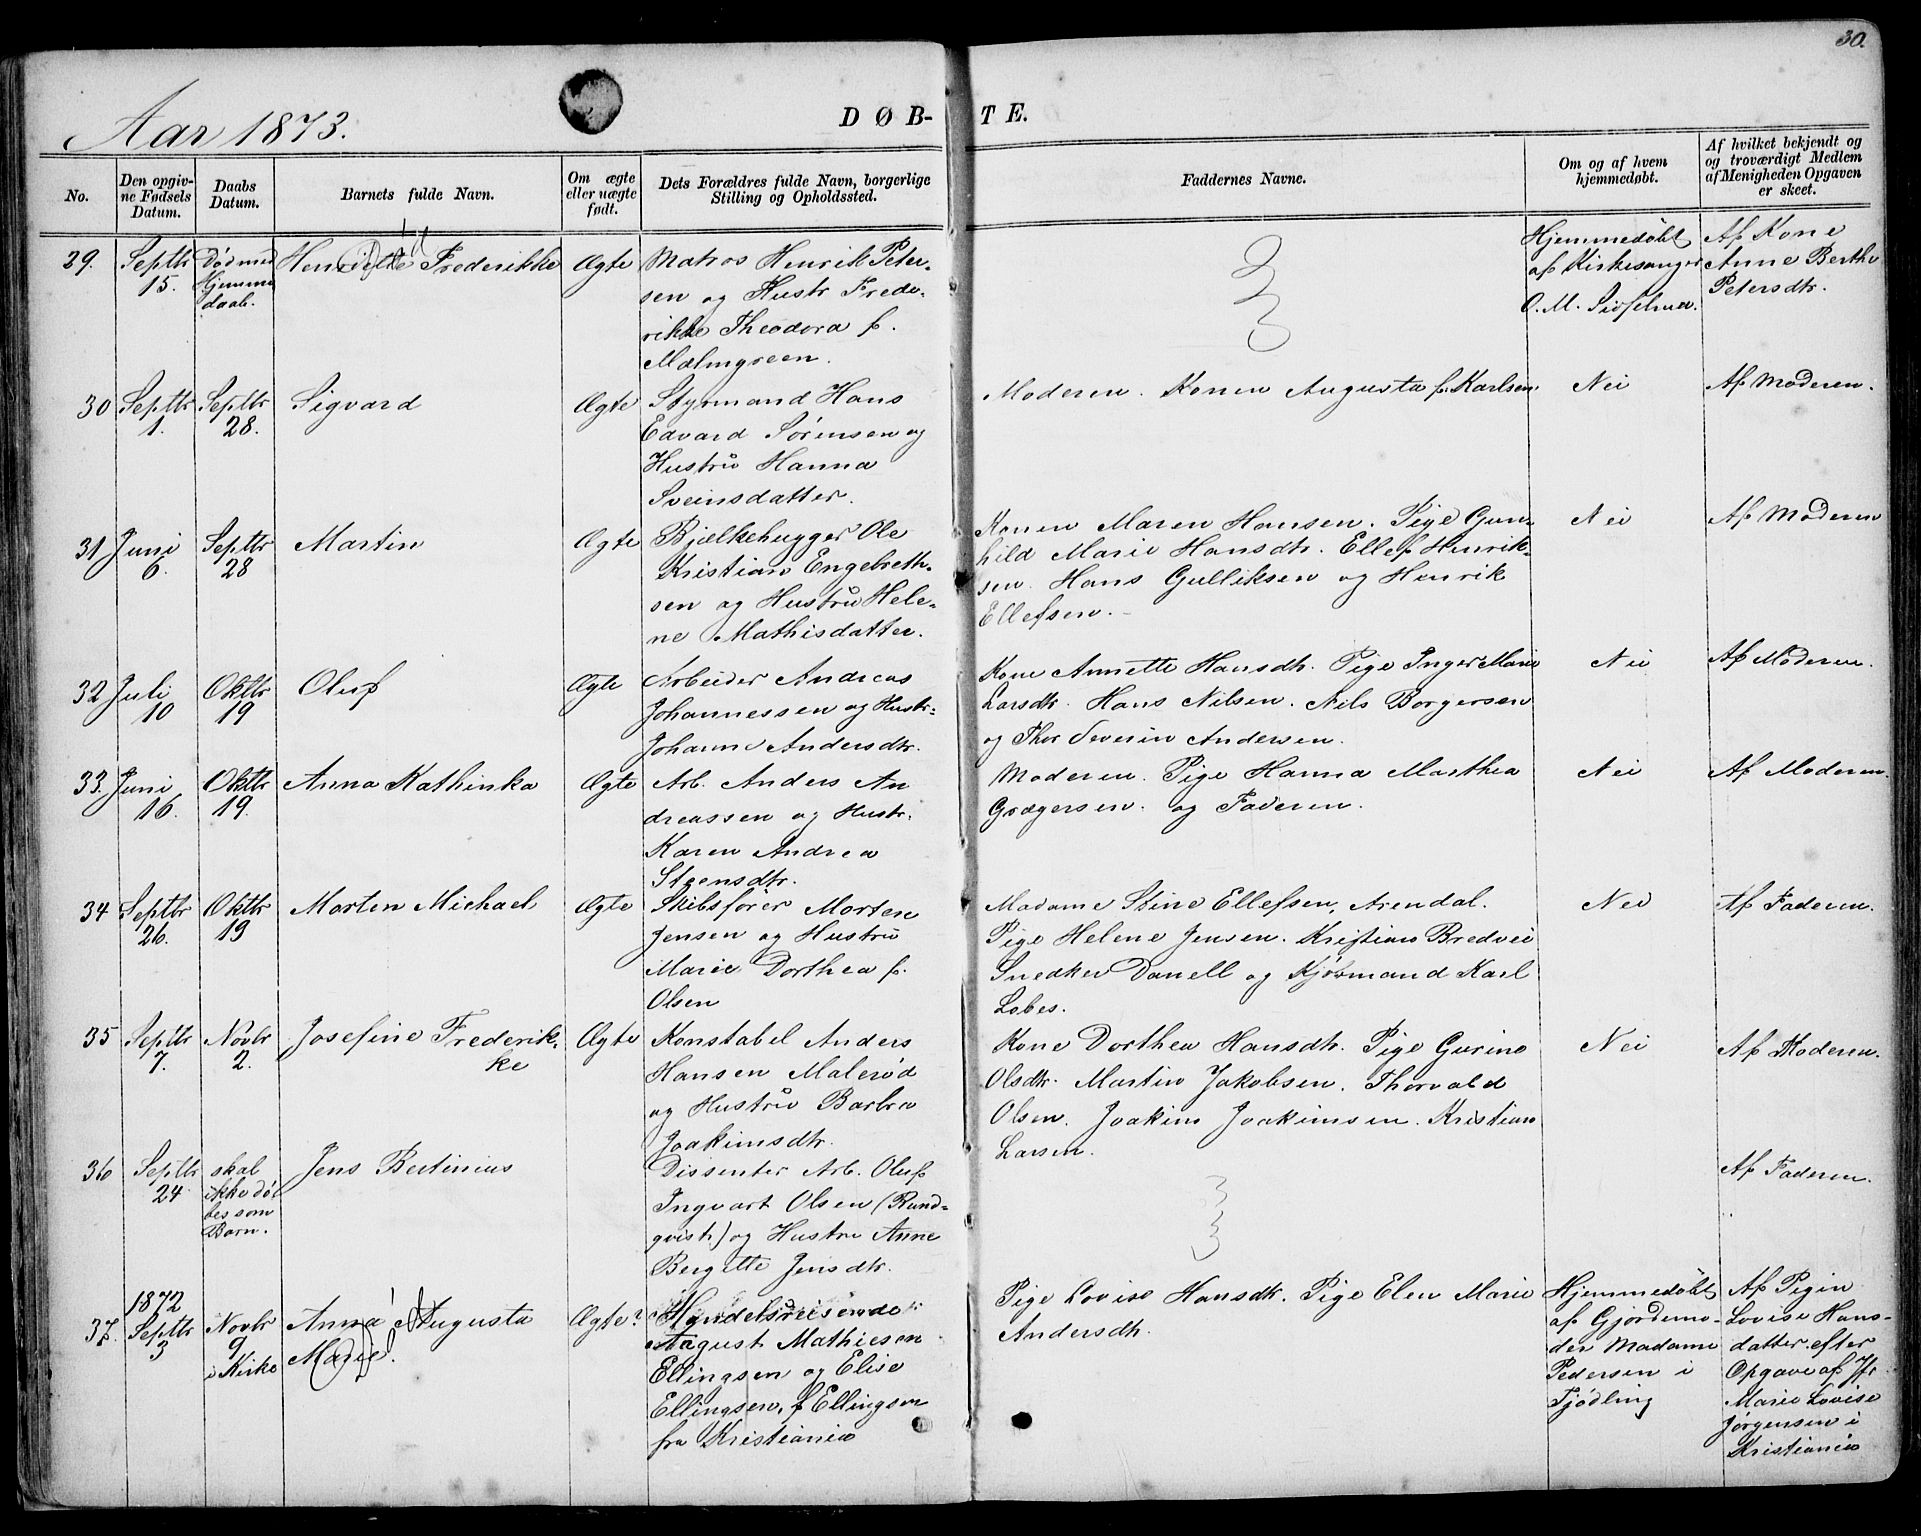 30.
Aar 1873.
DØB-
TE.
No.
Den opgiv-
ne Fødsels
Datum.
Daabs
Datum.
Barnets fulde Navn.
Om ægte
eller uægte
født.
Dets Forældres fulde Navn, borgerlige
Stilling og Opholdssted.
Faddernes Navne.
Om og af hvem
hjemmedøbt.
Af hvilket bekjendt og
og troværdigt Medlem
af Menigheden Opgaven
er skeet.
29.
Septbr
15.
Død med
Hjemme
daab.
Henriette Frederikke
Ægte
Matros Henrik Peter-
sen og Hustr Frede-
rikke Theodora f.
Malmgreen.
Hjemmedøbt
af Kirkesanger
O. M.
Af Kone
Anne Berthe
Petersdtr.
30
Septbr
1.
Septbr
28.
Sigvard
Ægte
Styrmand Hans
Edvard Sørensen og
Hustru Hanna
Sveinsdatter.
Moderen. Konen Augusta f. Karlsen
Nei
Af Moderen.
31
Juni
6.
Septbr
28
Martin
Ægte
Bjelkehugger Ole
Kristian Engebreth-
sen og Hustru Hele-
ne Mathisdatter.
Konen Maren Hansen. Pige Gun-
hild Marie Hansdtr. Ellef Henrik-
sen. Hans Gulliksen og Henrik
Ellefsen.
Nei
Af Moderen
32
Juli
10
Oktbr
19
Oluf
Ægte
Arbeider Andreas
Johannessen og Hustr-
Johanne Andersdtr.
Kone Annette Hansdtr. Pige Inger Marie
Larsdtr. Hans Nilsen. Nils Borgersen
og Thor Severin Andersen.
Nei
Af Moderen.
33.
Juni
16.
Oktbr
19.
Anna Kathinka
Ægte
Arb. Anders An
dreassen og Hustr.
Karen Andrea
Steensdtr.
Moderen. Pige Hanna Marthea
Grægersen. og Faderen.
Nei
Af Moderen.
34
Septbr
26.
Oktbr
19
Morten Michael
Ægte
Skibsfører Morten
Jensen og Hustru
Marie Dorthea f.
Olsen
Madame Stine Ellefsen, Arendal.
Pige Helene Jensen. Kristian Bredvei
Snedker Danell og Kjøbmand Karl
Lobes.
Nei
Af Faderen.
35
Septbr
7.
Novbr
2.
Josefine Frederik-
ke
Ægte
Konstabel Anders
Hansen Malerød
og Hustru Barbra
Joakimsdtr.
Kone Dorthea Hansdtr. Pige Gurine
Olsdtr. Martin Jakobsen. Thorvald
Olsen. Joakim Joakimsen. Kristian
Larsen.
Nei
Af Moderen.
36
Septbr
24
skal
ikke dø-
bes som
Barn.
Jens Bertinius
Dissenter Arb. Oluf
Ingvart Olsen (Rund-
qvist) og Hustru Anne
Bergitte Jensdtr.
Af Faderen.
37.
1872
Septbr
3
Novbr
9
i Kirke
Anna Augusta
Marie.
Ægte?
Handelsreisende
August Mathiesen
Ellingsen og Elise
Ellingsen, f Ellingsen
fra Kristiania
Pige Lovise Hansdtr. Pige Elen Marie
Andersdtr.
Hjemmedøbt
af Gjordemo-
der Madame
Pedersen i
Tjødling
Af Pigen
Lovise Hans-
datter efter
Opgave af Jfr
Marie Lovise
Jørgensen i
Kristiania